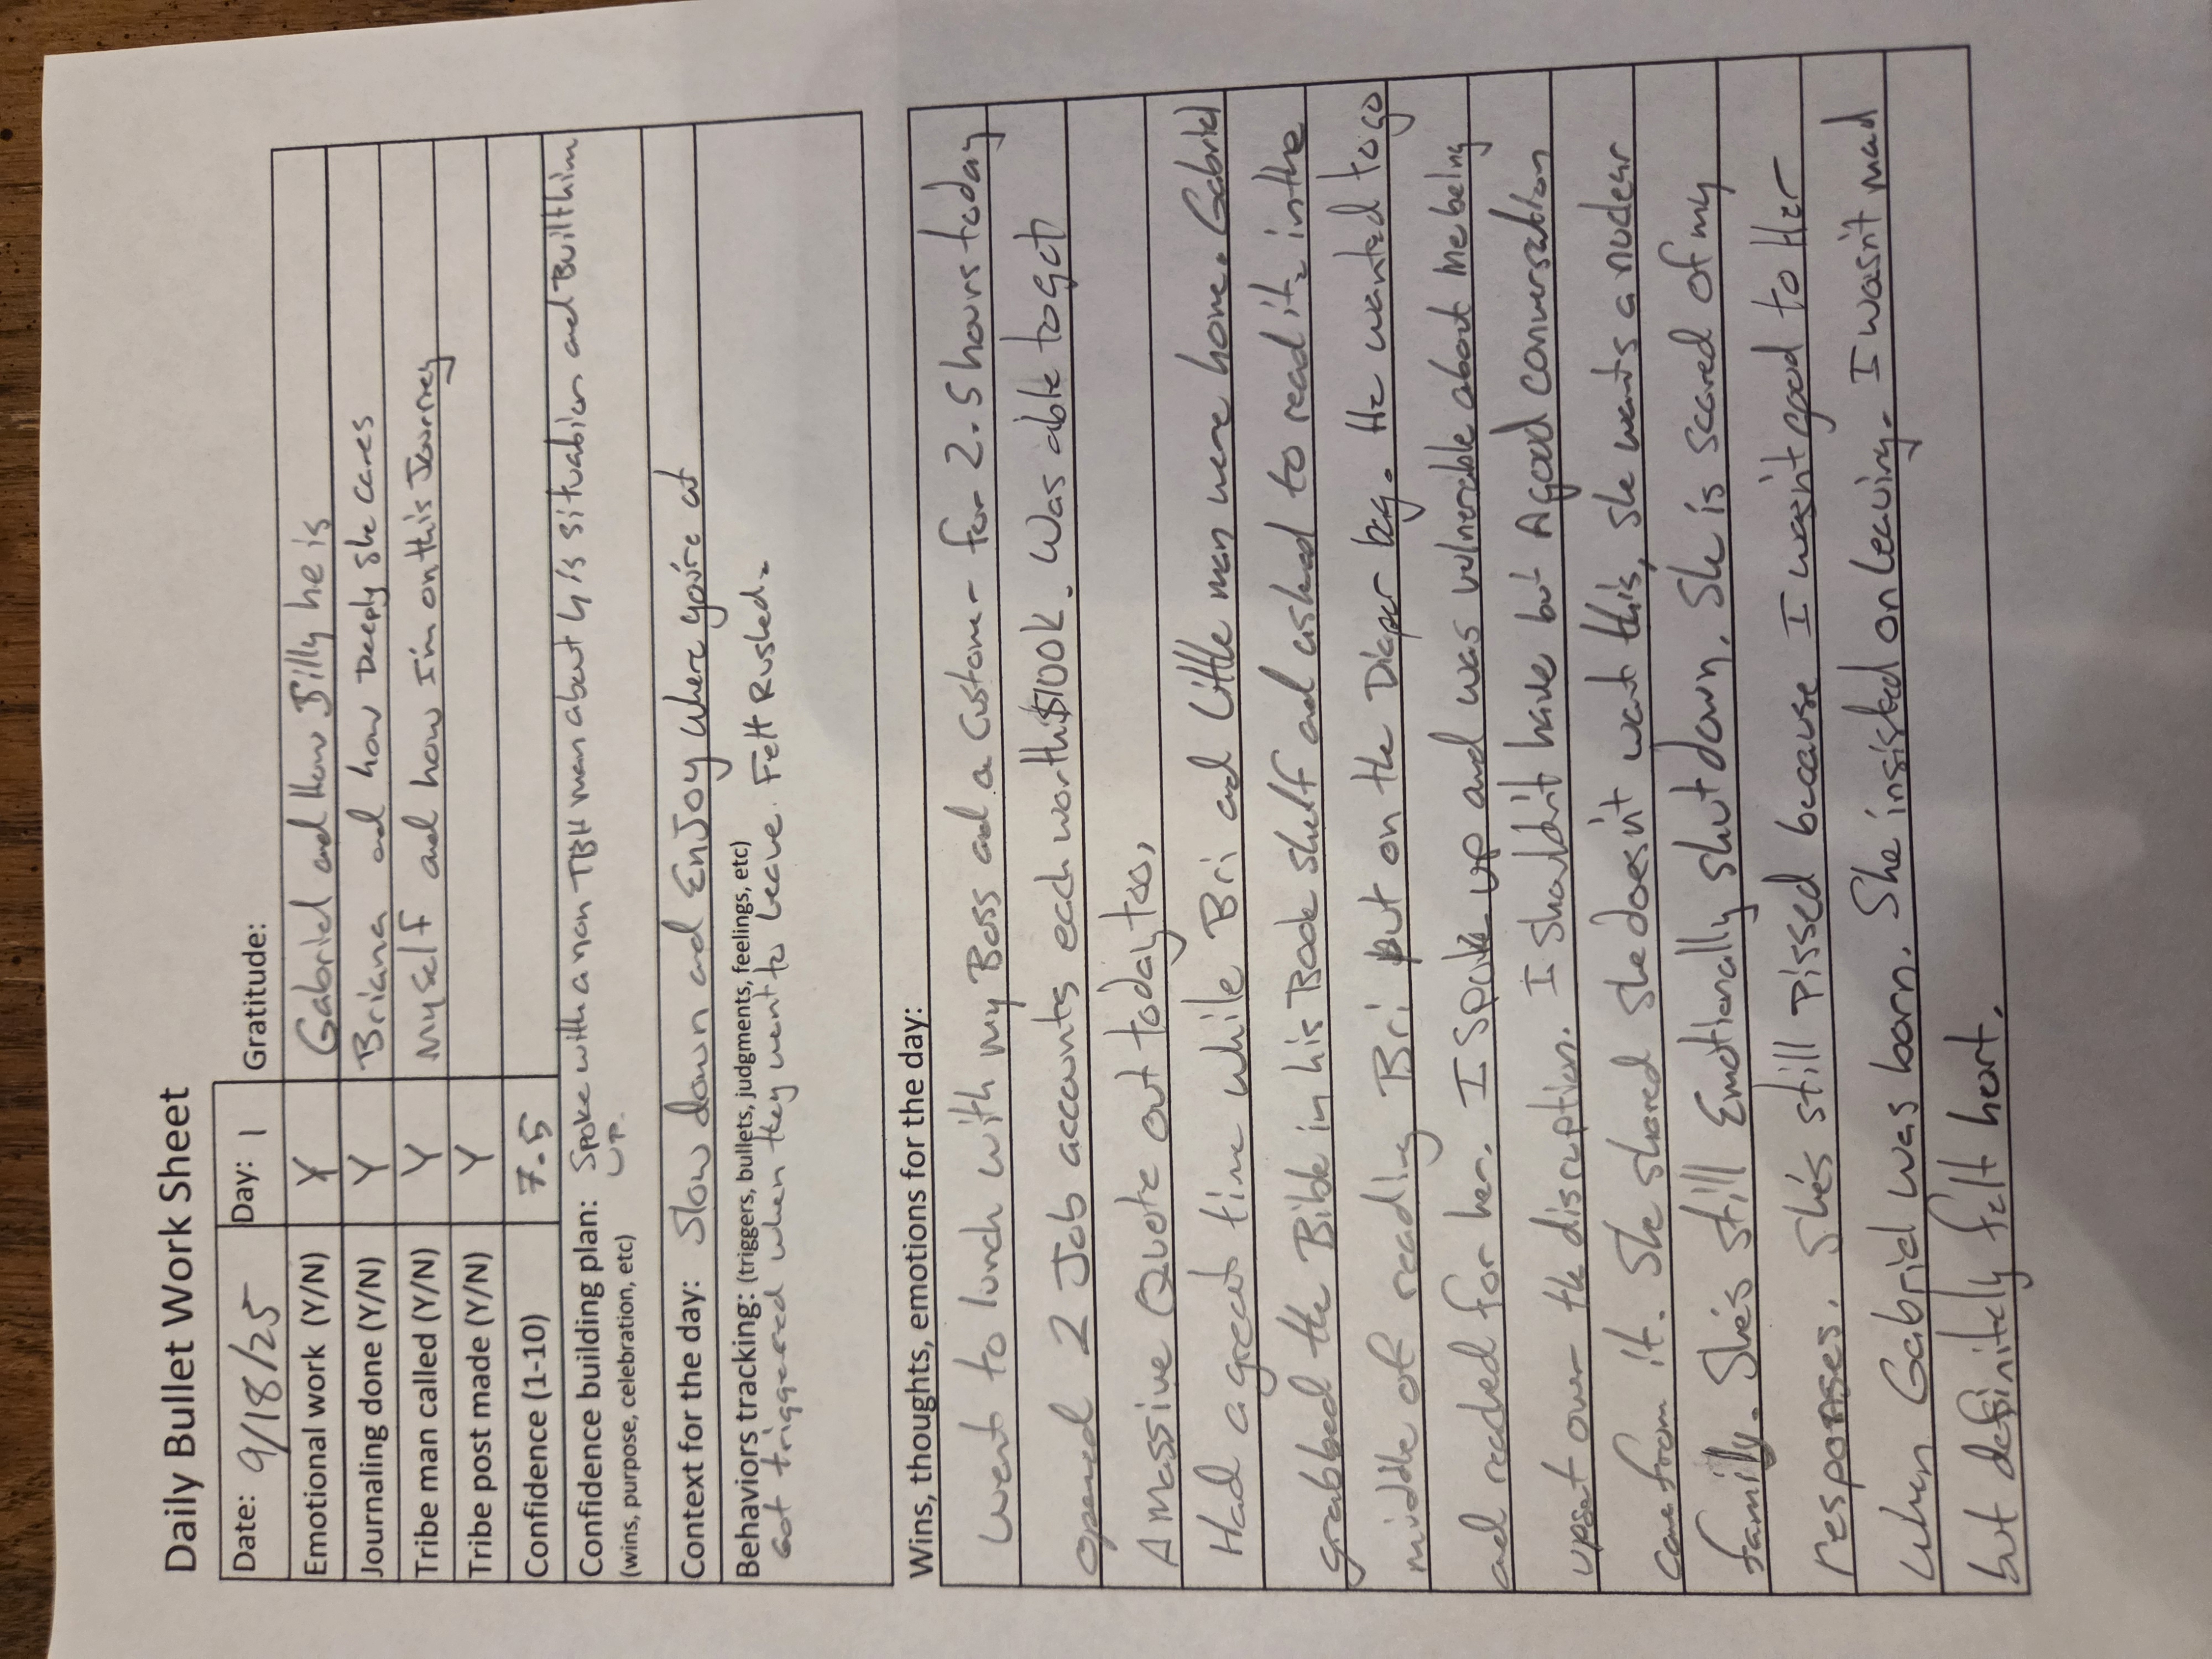 Daily Bullet Work Sheet
Date: 9/18/25 Day: 1 Gratitude:
Emotional work (Y/N) Y Gabriel and How Silly he is
Journaling done (Y/N) Y Briana and how Deeply she cares
Tribe man called (Y/N) Y Myself and how I'm on this Journey
Tribe post made (Y/N) Y
Confidence (1-10) 7.5
Confidence building plan: Spoke with a non TBH man about his situation and Built him
(wins, purpose, celebration, etc) UP.
Context for the day: Slow down and EnJoy where you're at
Behaviors tracking: (triggers, bullets, judgments, feelings, etc)
Got triggered when they went to leave. Felt Rushed.
Wins, thoughts, emotions for the day:
Went to lunch with my Boss and a customer for 2.5 hours today
opened 2 Job accounts each worth $100K. Was able to get
A massive Quote out today too,
Had a great time while Bri and Little man were home. Gabriel
grabbed the Bible in his Book shelf and asked to read it. in the
middle of reading Bri put on the Diaper bag. He wanted to go
and reached for her. I Spoke up and was vulnerable about me being
upset over the disruption. I shouldn't have but A good conversation
came from it. She shared she doesn't want this, she wants a nuclear
family. She's still Emotionally shut down. She is scared of my
responses. She's still Pissed because I wasn't good to Her
when Gabriel was born. She insisted on leaving. I wasn't mad
but definitely felt hurt.